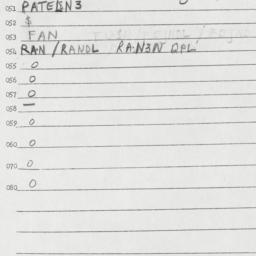 051 PATELSN3
052 $
053 FAN
054 RAN / RANDL RAN3N
055 0
056 0
057 0
058 —
059 0
060 0
070 0
080 0